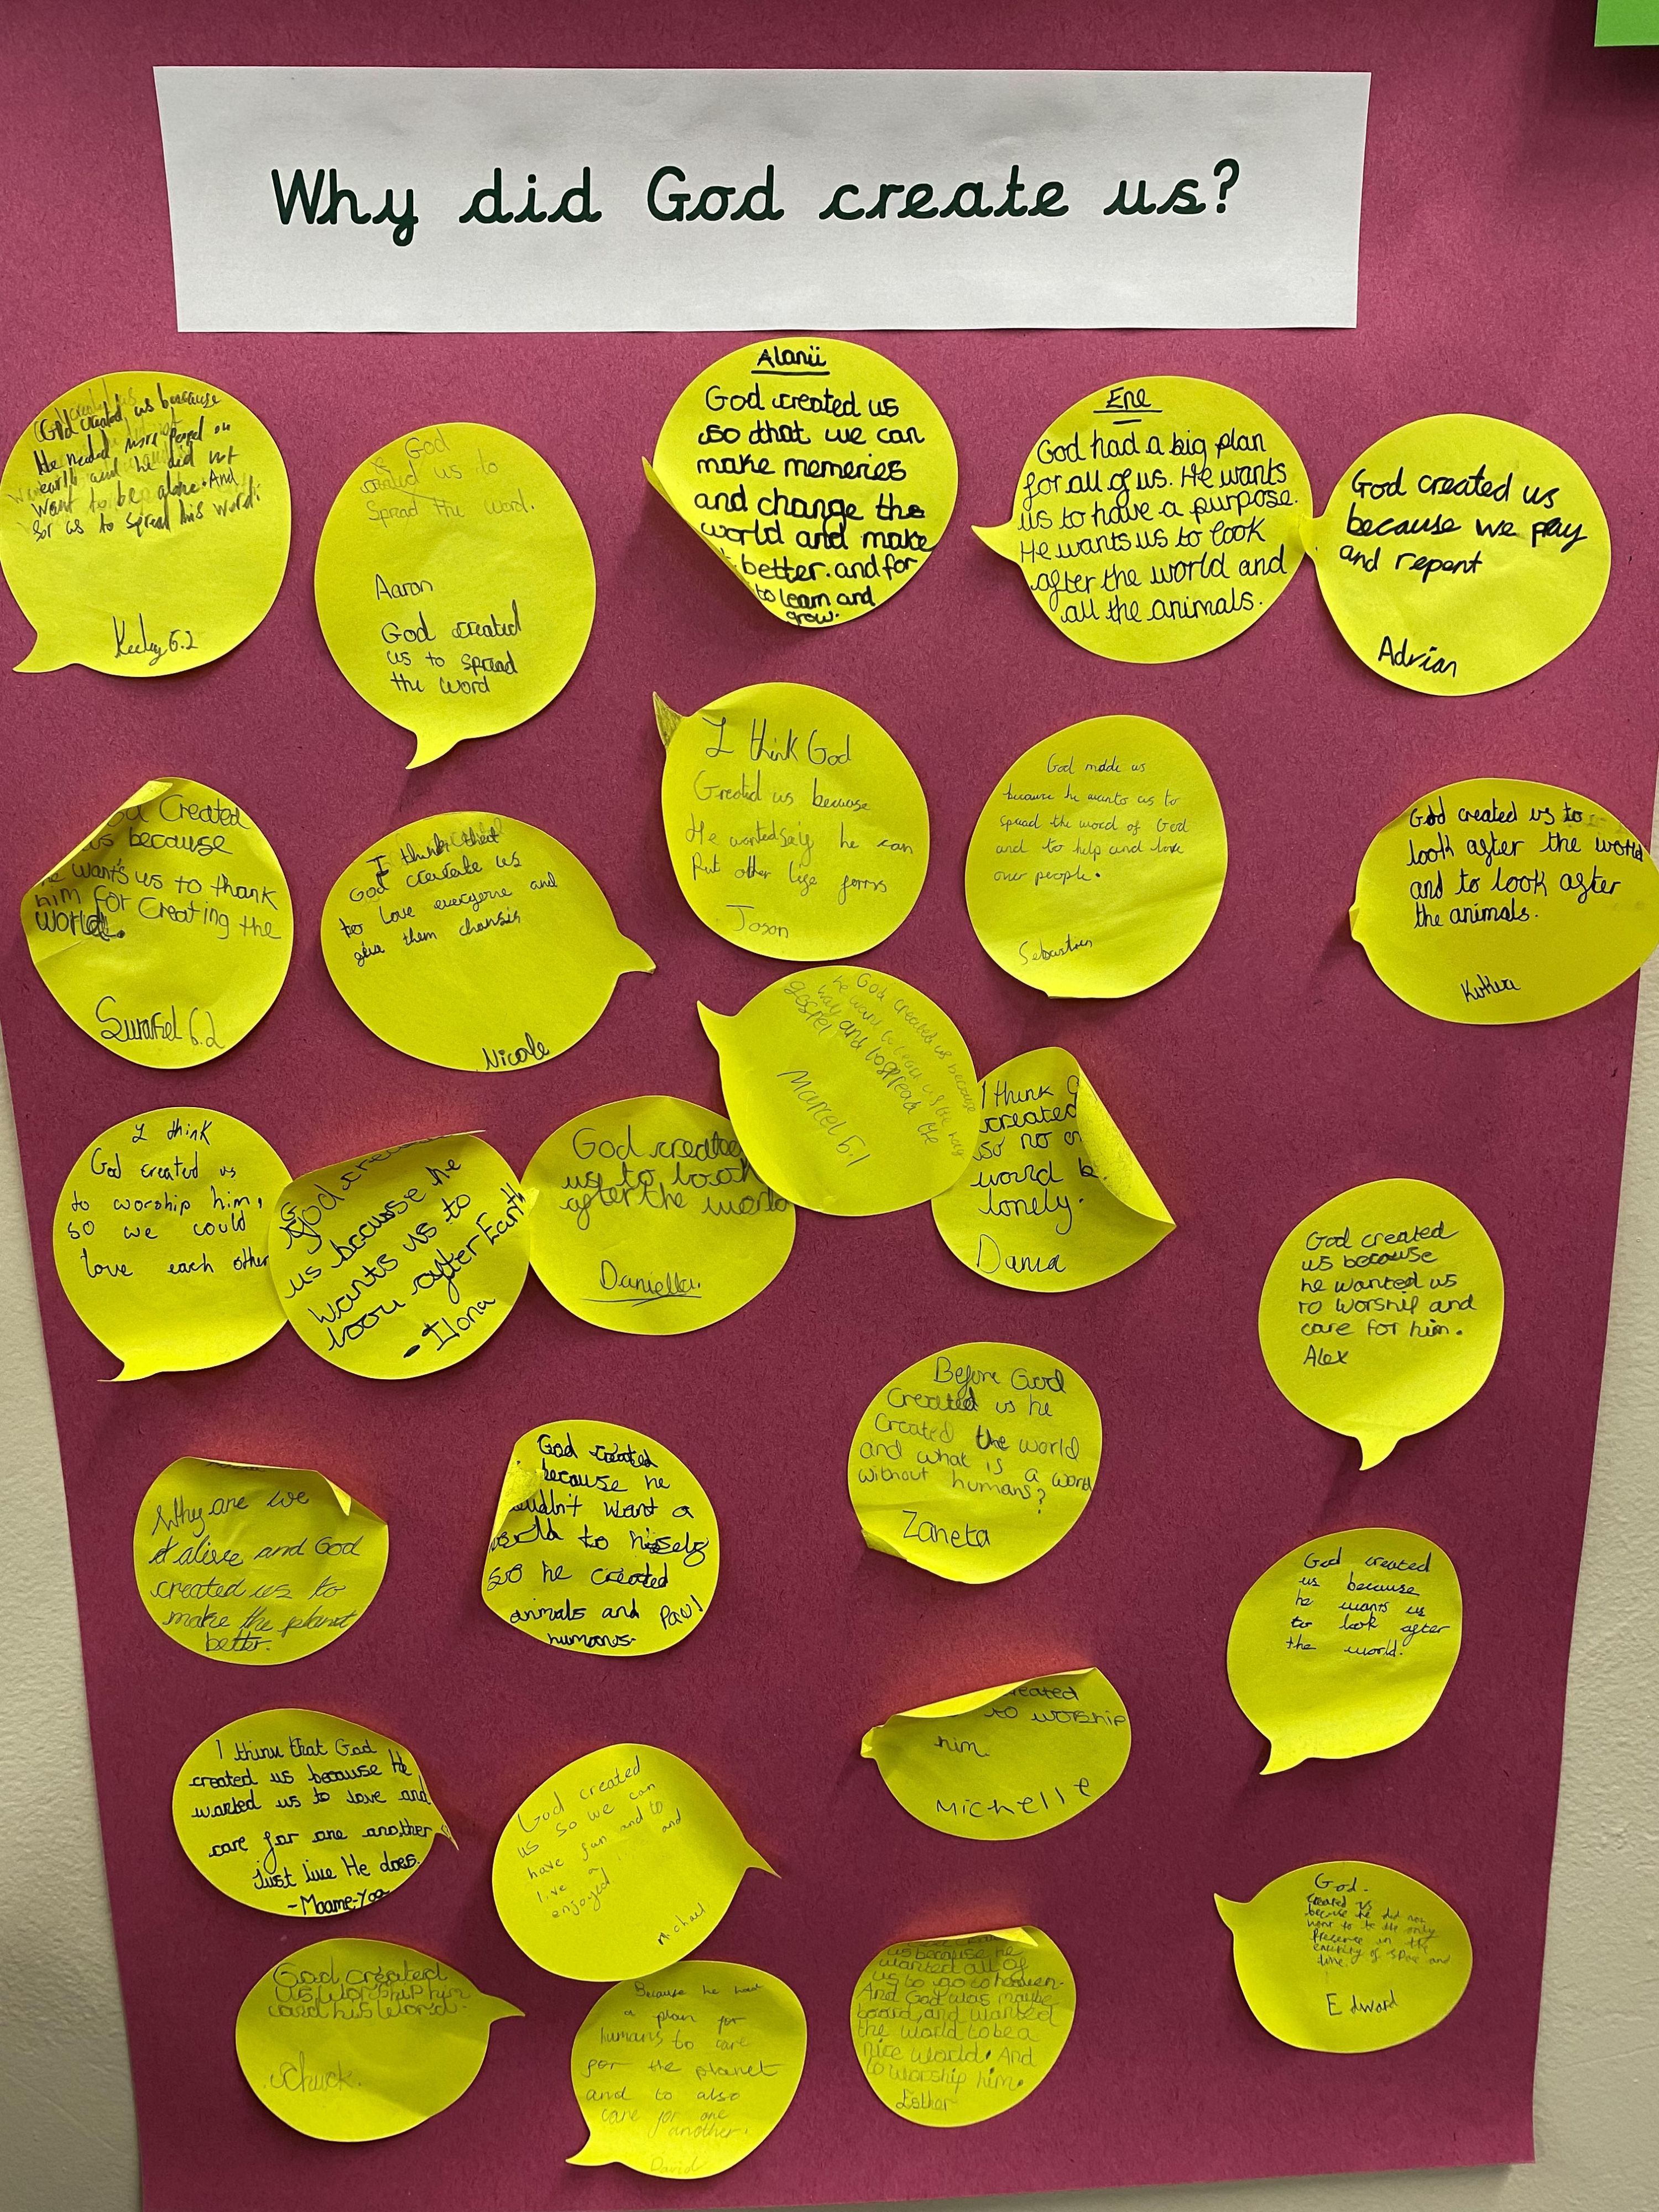 Why did God create us?
God created us because
He needed more people on
earth and he did not
want to be alone. And
for us to spread his word.
Keeley 6.2
God
created us to
Spread the word.
Aaron
God created
us to spread
the word
Alanii
God created us
so that we can
make memeries
and change the
world and make
better. and for
to learn and
grow.
Ene
God had a big plan
for all of us. He wants
us to have a purpose.
He wants us to look
after the world and
all the animals.
God created us
because we pray
and repent
Adrian
Created
us because
wants us to thank
him for Creating the
world.
6.2
I think that
God create us
to love everyone and
them
Nicole
I think God
Created us because
He wanted he can
Put other lige forms
Joson
God made us
because he wants us to
spread the word of God
and to help and love
our people.
Sebastien
God created us to
look after the world
and to look after
the animals.
God created us because
he want to
and to spread the
gospel
Marcel 6.1
I think
God created us
to worship him,
so we could
love each other
God
us because he
wants us to
look after Earth
- Ilona
God create
us to look
after the world
Daniella.
I think
created
so no
would
lonely.
Dania
God created
us because
he wanted us
to worship and
care for him.
Alex
Before God
Created us he
Created the world
and what is a world
without humans?
Zaneta
Why are we
alive and God
created us to
make the planet
better.
God created
because he
want a
to hisself
so he created
animals and
humans.
Paul
God created
us because
he wants us
to look after
the world.
to worship
him.
Michelle
I think that God
created us because He
wanted us to love and
care for one another
Just like He does.
- Maame-Yaa
God created
us so we can
have fun and to
live a and
enjoyed
Michael
God created
us worship him
and his world.
Chuck.
Because he had
a plan for
humans to care
for the planet
and to also
care for one
another.
David
us because he
wanted all of
us to go to heaven.
And God was maybe
board, and wanted
the world to be a
nice world. And
to worship him.
Esther
God.
Created us
because he did not
want to be the only
Presence in the
entirity of space and
time.
Edward